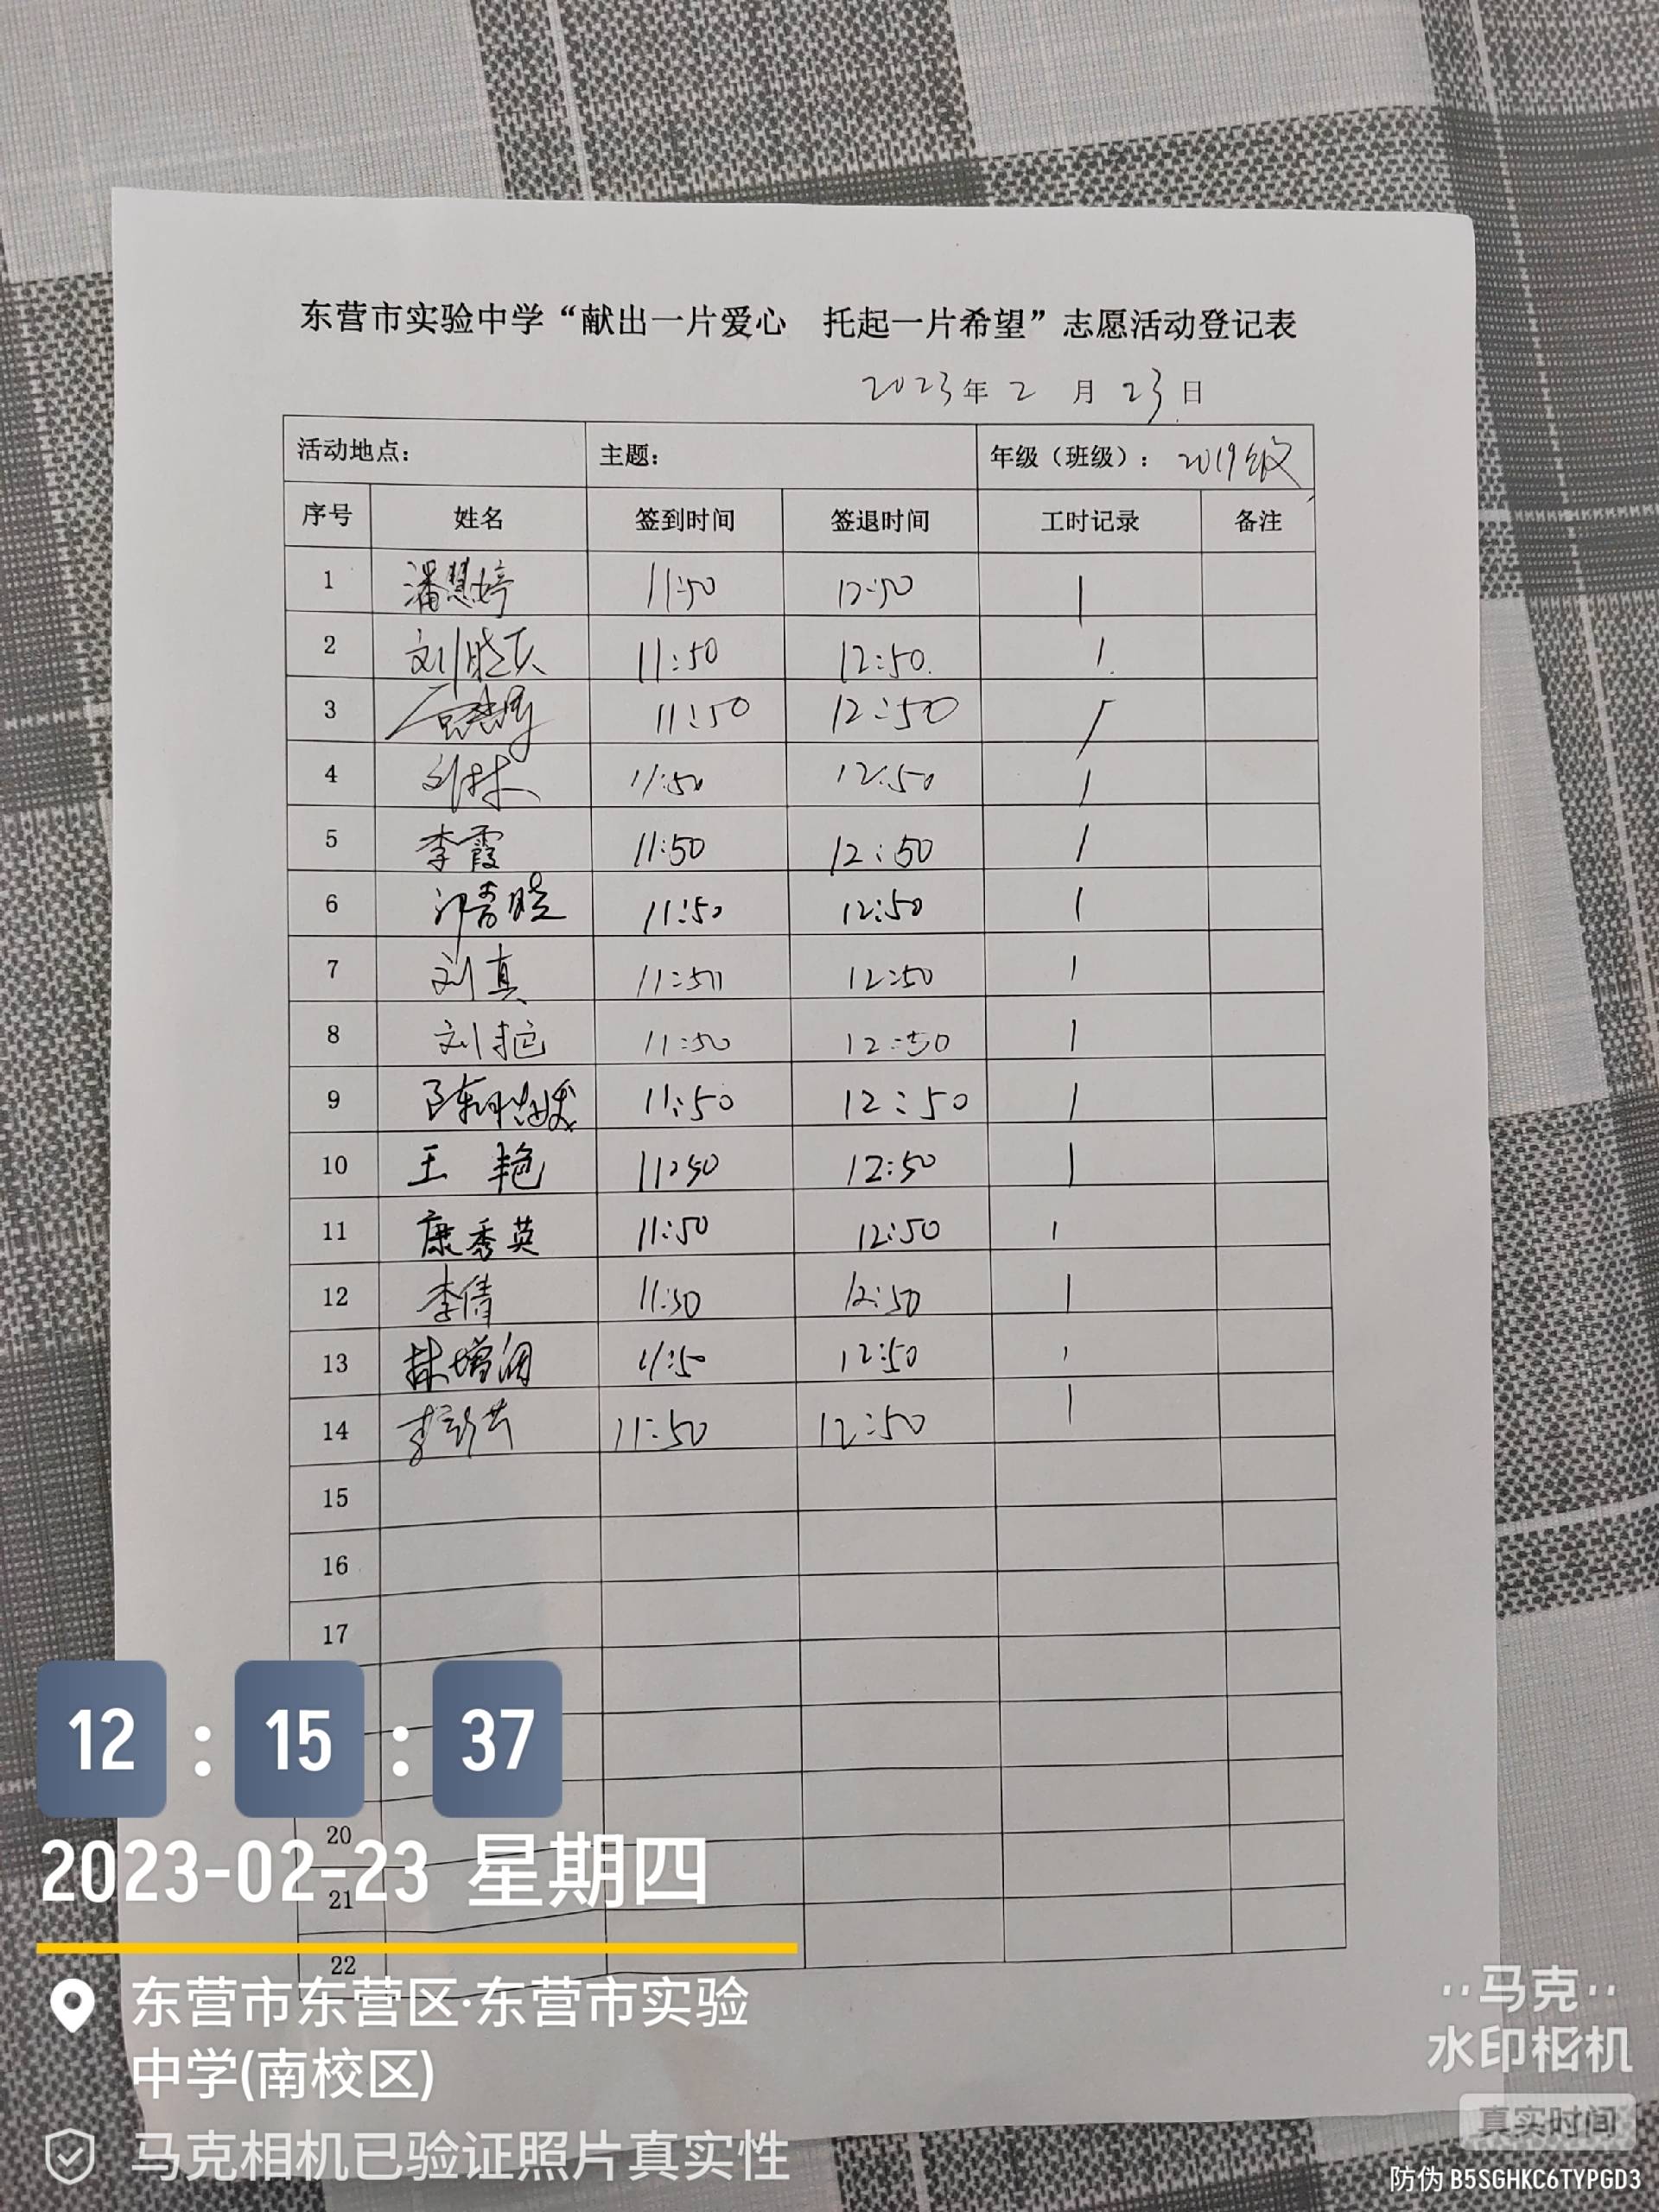 东营市实验中学“献出一片爱心 托起一片希望”志愿活动登记表
2023年 2 月 23日
活动地点： 主题： 年级（班级）： 2019级
序号 姓名 签到时间 签退时间 工时记录 备注
1 潘慧婷 11:50 12:50 1
2 刘晓 11:50 12:50 1
3 11:50 12:50 1
4 林 11:50 12:50 1
5 李霞 11:50 12:50 1
6 晓 11:50 12:50 1
7 刘真 11:50 12:50 1
8 刘艳 11:50 12:50 1
9 陈 11:50 12:50 1
10 王艳 11:50 12:50 1
11 康秀英 11:50 12:50 1
12 李倩 11:50 12:50 1
13 林增 11:50 12:50 1
14 李 11:50 12:50 1
15
16
17
20
21
22
12:15:37
2023-02-23 星期四
东营市东营区·东营市实验
中学(南校区)
马克相机已验证照片真实性
马克
水印相机
真实时间
防伪 B5SGHKC6TYPGD3